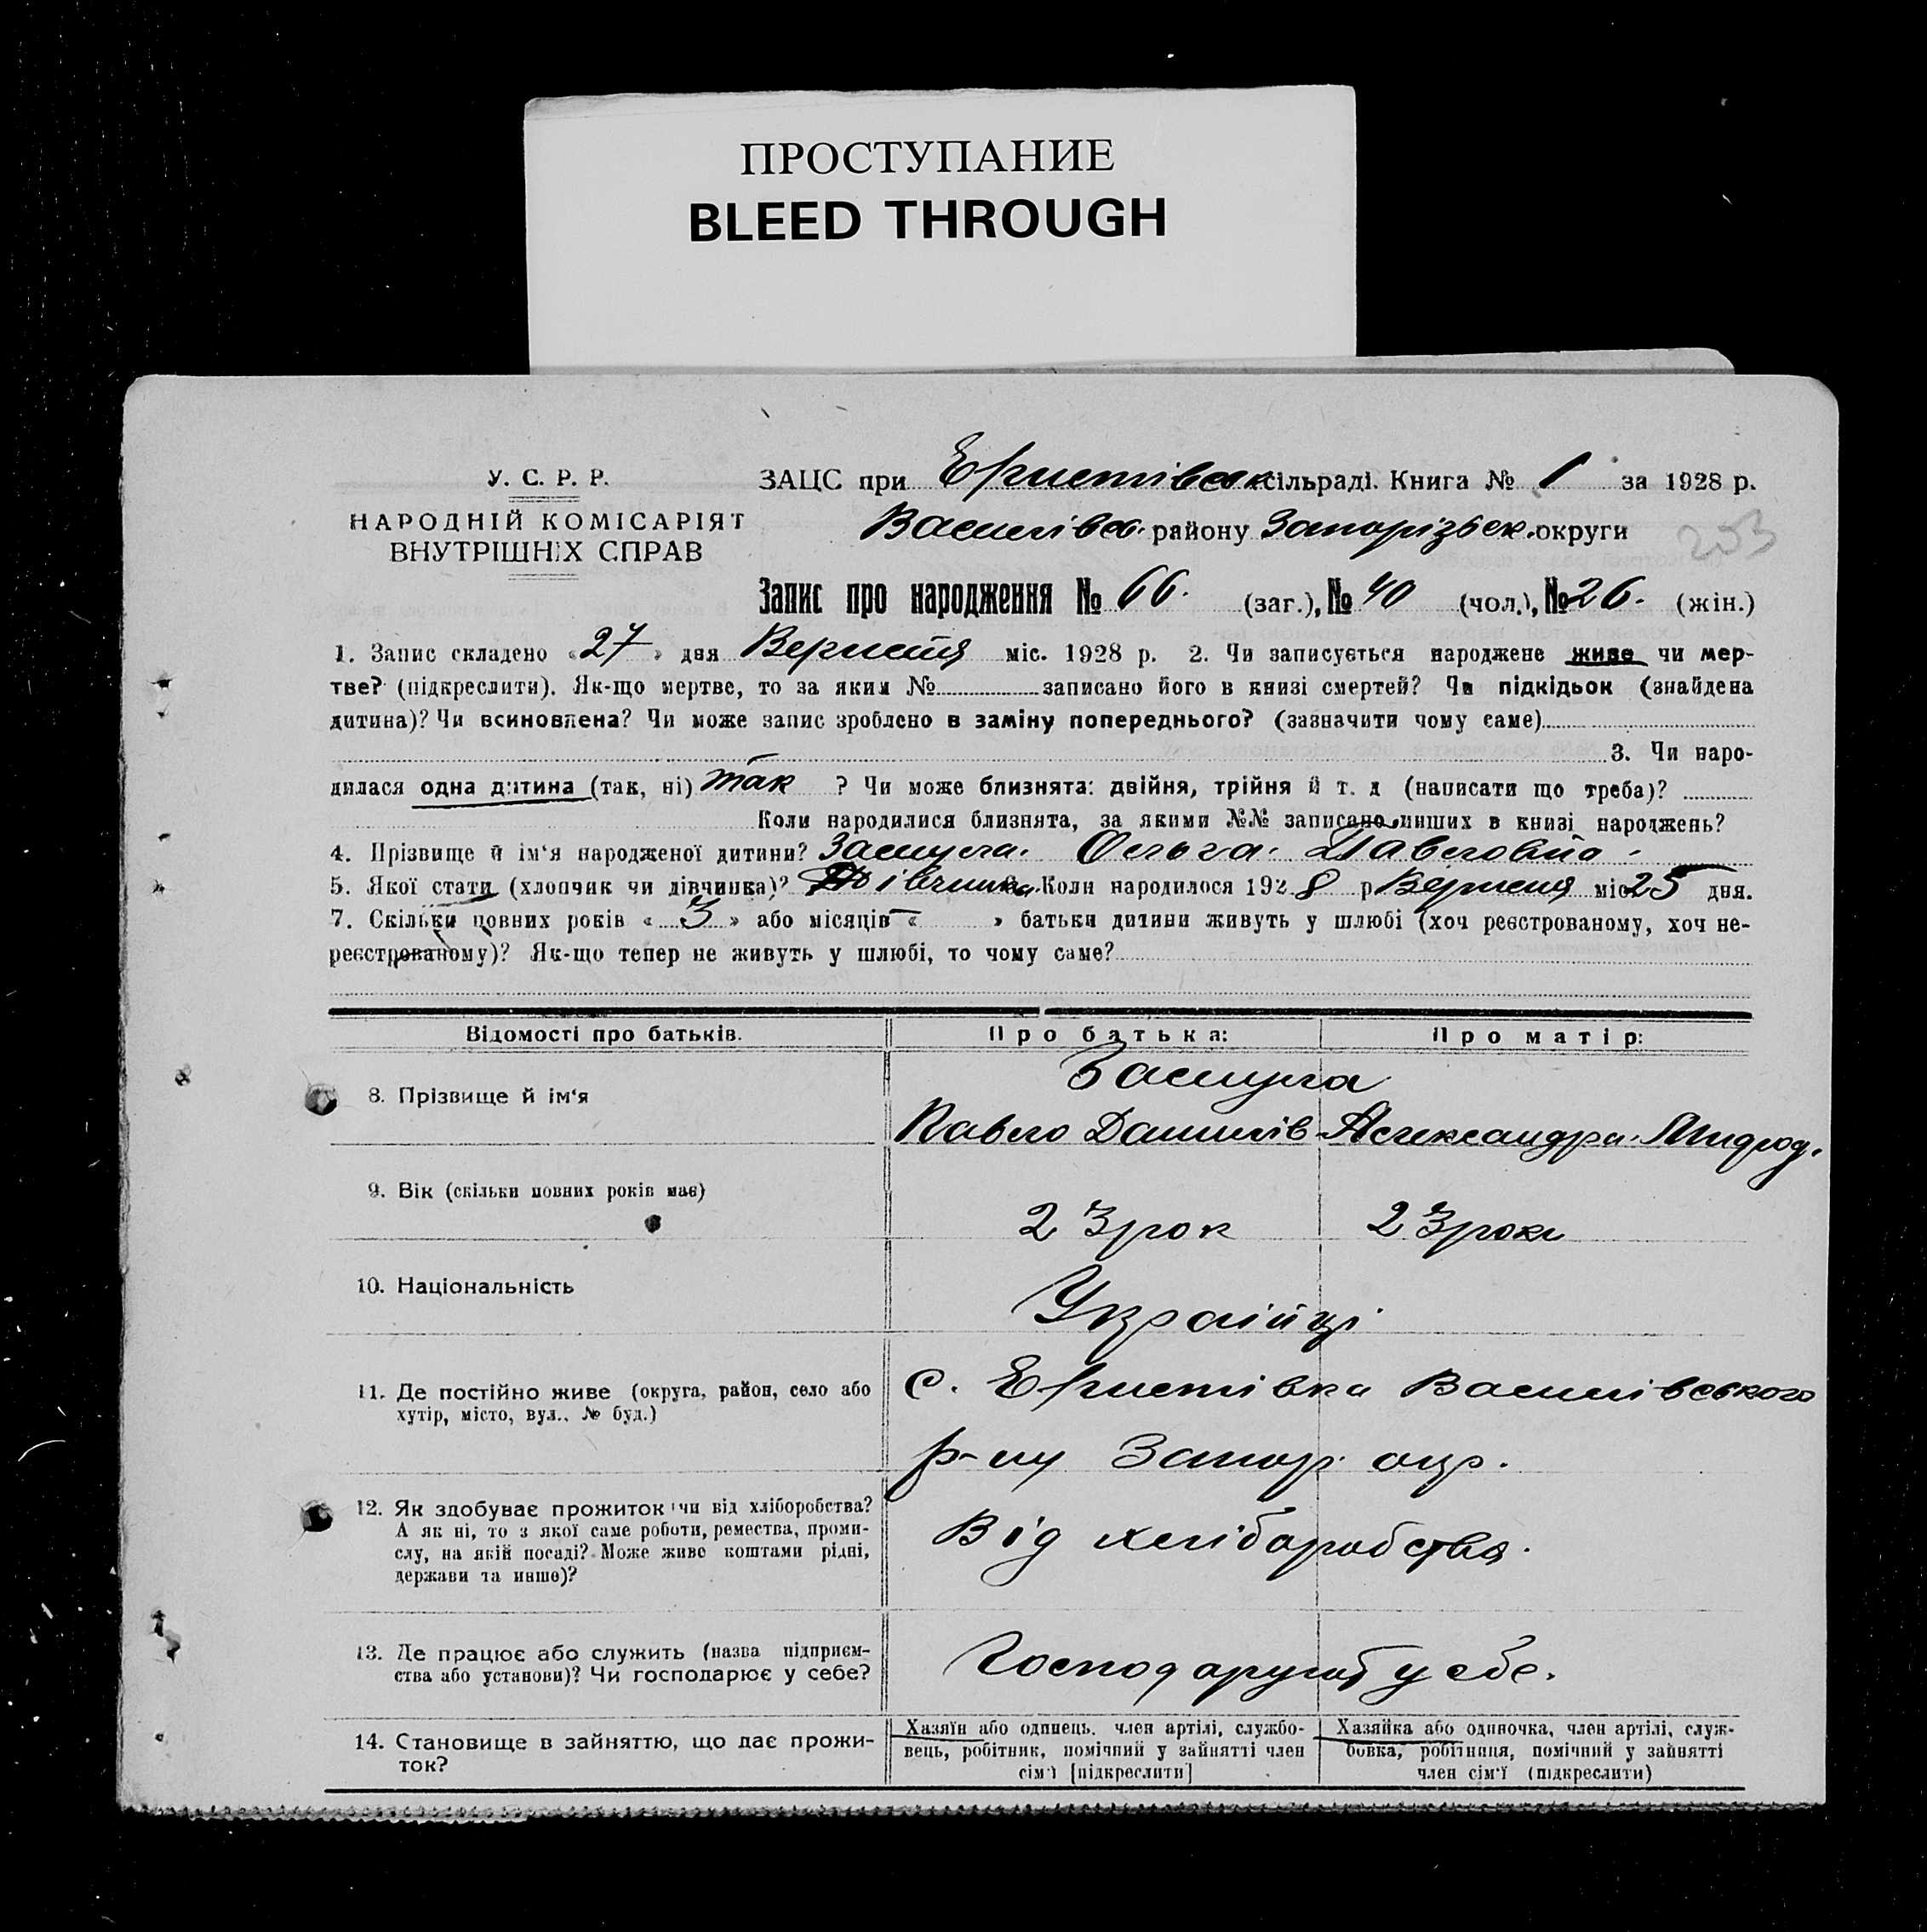 ПРОСТУПАНИЕ
BLEED THROUGH
У. С. Р. Р.
НАРОДНІЙ КОМІСАРІЯТ
ВНУТРІШНІХ СПРАВ
ЗАЦС при Еристівськ сільраді. Книга № 1 за 1928 р.
Василівс. району Запорізьск. округи
203
Запис про народження № 66. (заг.), № 40 (чол.), № 26. (жін.)
1. Запис складено «27» дня Вересня міс. 1928 р. 2. Чи записується народжене живе чи мер-
тве? (підкреслити). Як-що мертве, то за яким № записано його в книзі смертей? Чи підкідьок (знайдена
дитина)? Чи всиновлена? Чи може запис зроблено в заміну попереднього? (зазначити чому саме)
3. Чи наро-
дилася одна дитина (так, ні) так ? Чи може близнята: двійня, трійня й т. д (написати що треба)?
Коли народилися близнята, за якими №№ записано инших в книзі народжень?
4. Прізвище й ім'я народженої дитини? Ольга Павловна
5. Якої стати (хлопчик чи дівчинка)? Дівчинка Коли народилося 1928 р Вересня міс 25 дня.
7. Скільки повних років «3» або місяців « » батьки дитини живуть у шлюбі (хоч реєстрованому, хоч не-
реєстрованому)? Як-що тепер не живуть у шлюбі, то чому саме?
Відомості про батьків.
Про батька:
Про матір:
8. Прізвище й ім'я
Павло Данилів
Александра
9. Вік (скільки повних років має)
23 рок
23 роки
10. Національність
Українці
11. Де постійно живе (округа, район, село або
хутір, місто, вул., № буд.)
с. Еристівка Василівського
р-ну Запор. окр.
12. Як здобуває прожиток (чи від хліборобства?
А як ні, то з якої саме роботи, ремества, проми-
слу, на якій посаді? Може живе коштами рідні,
держави та инше)?
Від хлібаробства.
13. Де працює або служить (назва підприєм-
ства або установи)? Чи господарює у себе?
у себе.
14. Становище в зайняттю, що дає прожи-
ток?
Хазяїн або одинець. член артілі, службо-
вець, робітник, помічний у зайнятті член
сім'ї [підкреслити]
Хазяйка або одиночка, член артілі, служ-
бовка, робітниця, помічний у зайнятті
член сім'ї (підкреслити)